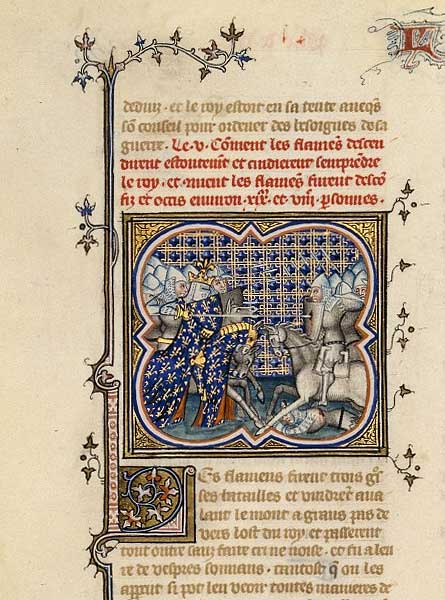 deduiz · et le roy estoit en sa tente auecq̃s
sõ conseil pour ordener des besoignes de sa
guerre. Le · v · Cõment les flamẽs descen
dirent estoutemẽt et cuidierent seurprẽdre
le roy · et cõment les flamẽs furent descõ
fiz et occis enuiron · et · viii · psonnes ·
Les flamens firent trois gͬs
ses batailles et vindrẽt aua
lant le mont a grans pas de
vers lost du roy et passerent
tout outre sanz faire cri ne noise · et fu a leu
re de vespres sonnans · tantost q̃ on les
si pot len veoir toutes manieres de